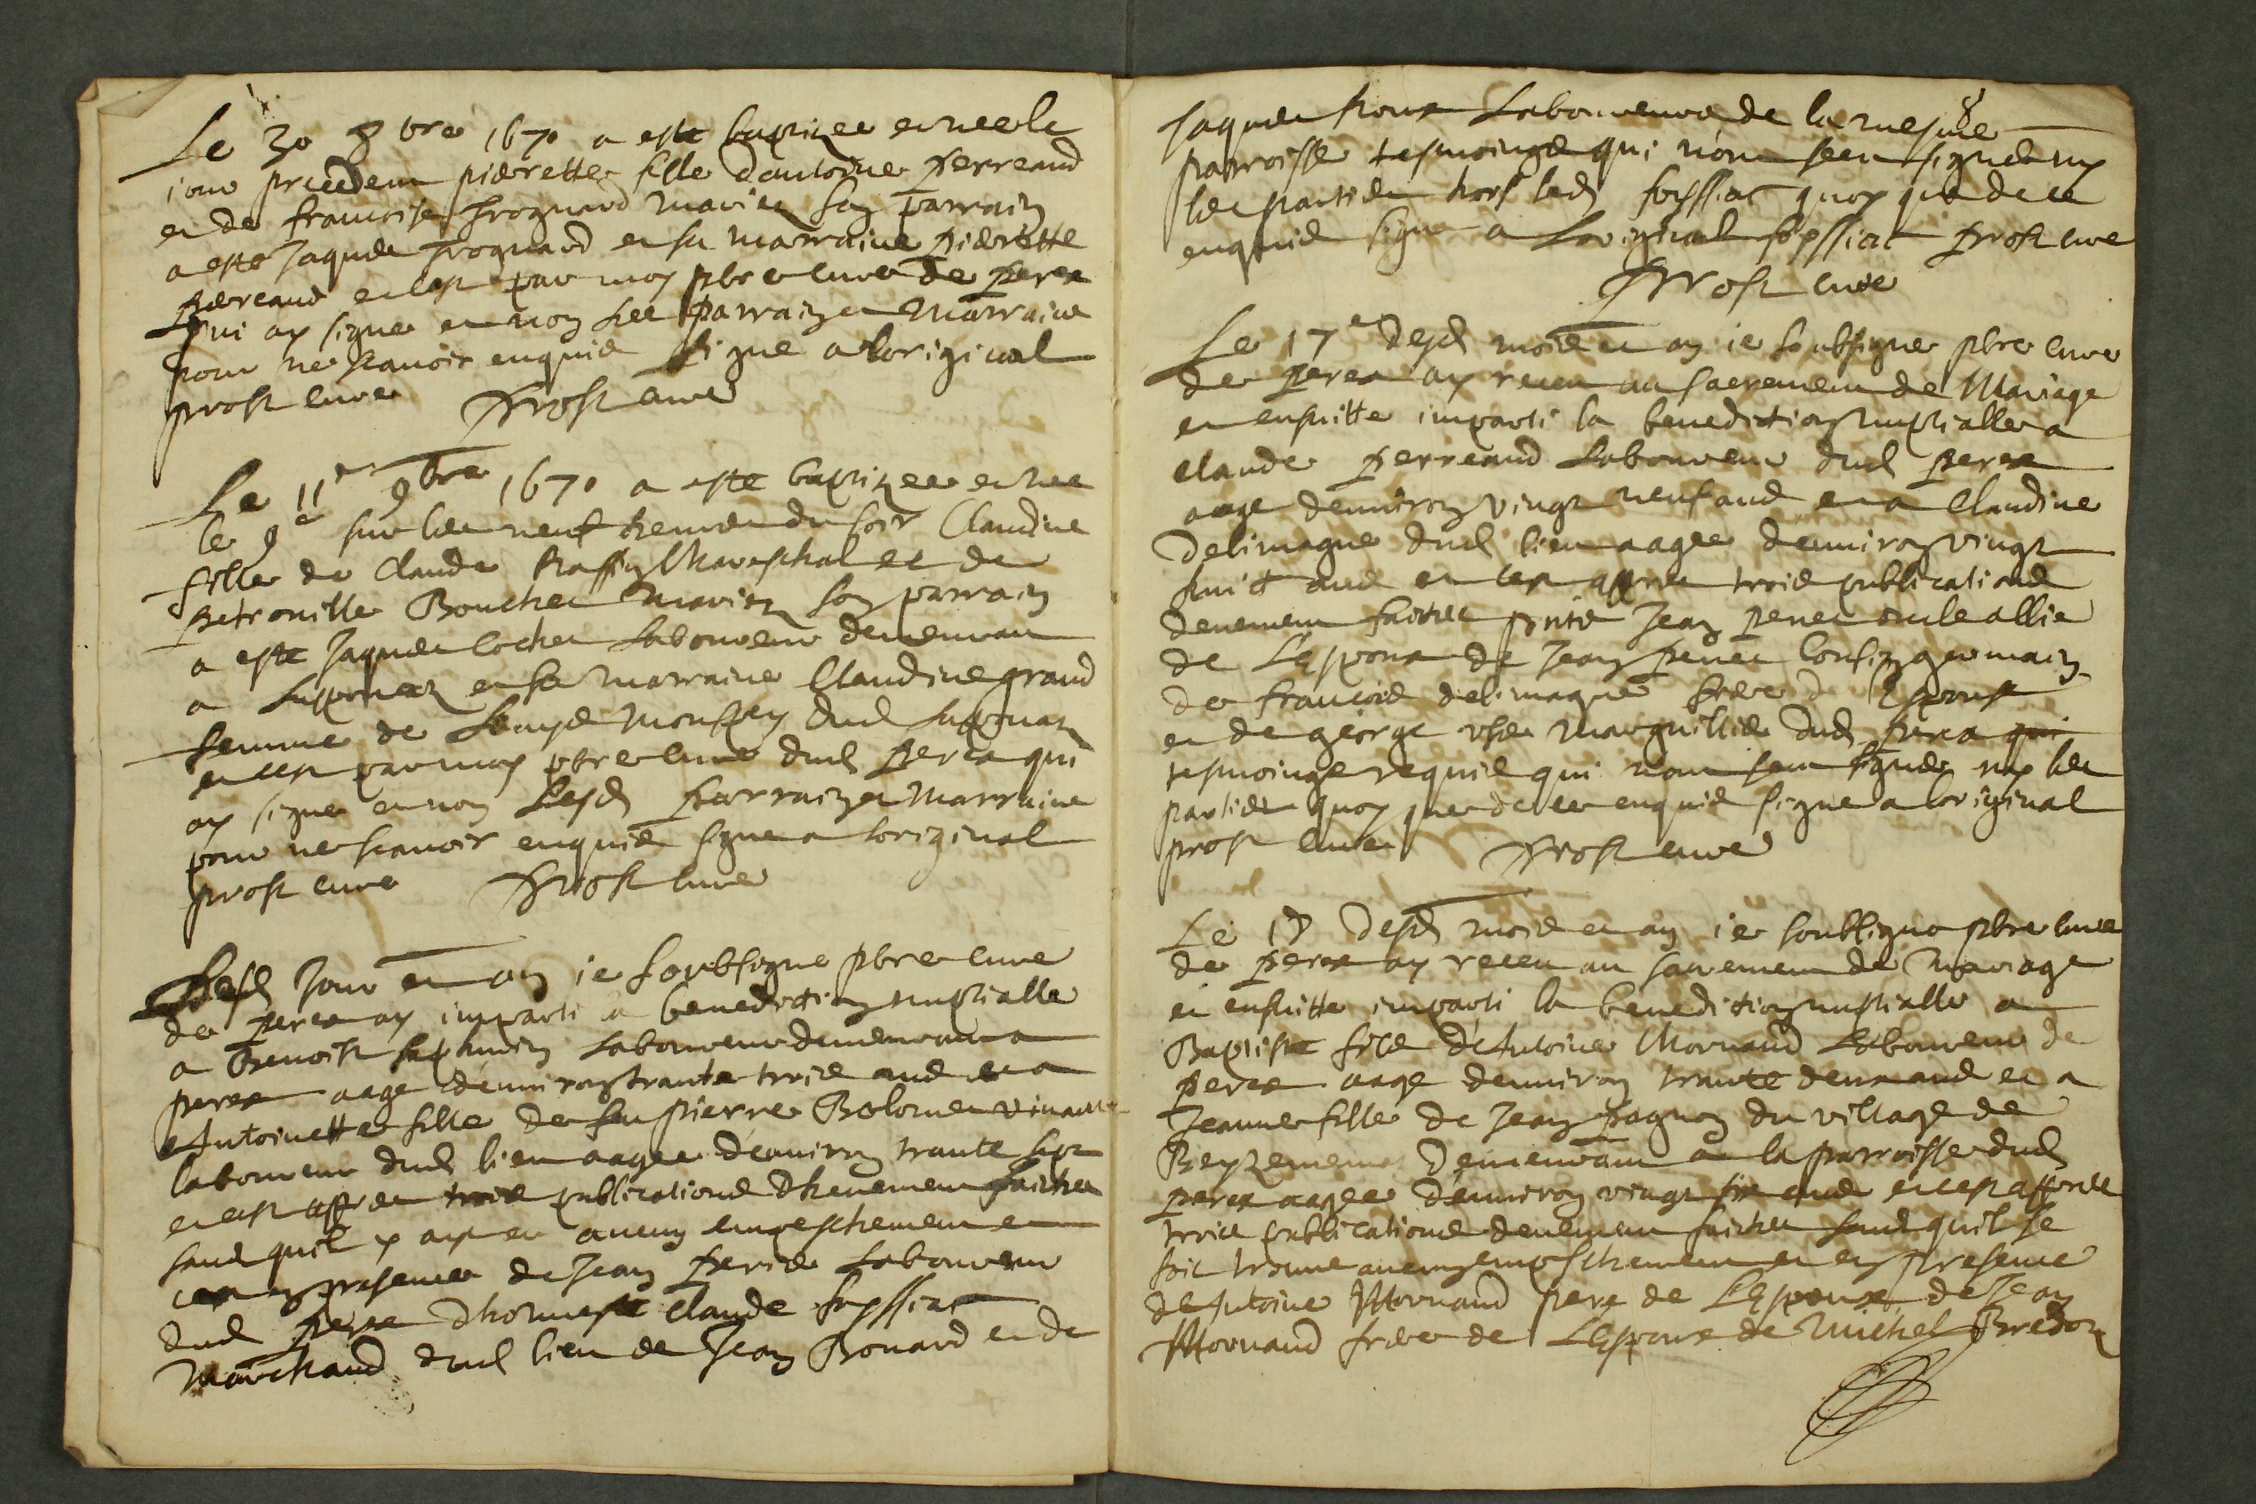 Le 30 8bre 1670 a este baptizee et nee le
jour precedent pierrette fille dantoine perreaud
et de francoise froquard mariez son parrain
a este Jaques froquard et sa marraine pierrette
perreaud et cest par moy pbre cure de perex
qui ay signe et non les parrain et marraine
pour ne scavoir enquis signe a loriginal
prost cure Prost cure
Le 11e 9bre 1670 a este baptizee et nee
le 9e sur les neuf heures du soir Claudine
fille de Claude Raffin Mareschal et de
petronille Bouchet mariez son parrain
a este Jaques Cochet Laboureur demeurant
a et sa marraine Claudine grand
femme de Louys dud
et cest par moy pbre cure dud perex qui
ay signe et non lesd parrain et marraine
pour ne scavoir enquis signe a loriginal
prost cure Prost cure
Lesd Jour et an ie soubsigne pbre cure
de perex ay imparti la benediction nuptialle
a Benoist laboureur demeurant a
perex aage denviron trante trois ans et a
Antoinette fille de feu pierre vivant
laboureur dud lieu aagee denviron trante sept
et cest apres trois publications dhuement faictes
sans quil y aye eu aucun empeschement et
en presence de Jean laboureur
dud perex dhonneste Claude
Marchand dud lieu de Jean Bonard et de
8
Jaques Laboureur de la mesme
parroisse tesmoings qui nont sceu signer ny
les parties hors led quoy que de ce
enquis signe a Loriginal prost cure
Prost cure
Le 17e desd mois et an ie soubsigne pbre cure
de perex ay receu au sacrement de Mariage
et ensuitte imparti la benediction nuptialle a
Claude perreaud Laboureur dud perex
aage denviron vingt neuf ans et a Claudine
delimagne dud lieu aagee denviron vingt
huit ans et cest apres trois publications
deuement faictes pnts Jean oncle allie
de Lespoux de Jean Cousin germain
de francois delimagne frere de Lespouse
et de george marguillier dud perex qui
tesmoings requis qui nont sceu signer ny les
parties quoy que de ce enquis signe a loriginal
prost cure Prost cure
Le 18 desd mois et an ie soubsigne pbre cure
de perex ay receu au sacrement de mariage
et ensuitte imparti la benediction nuptialle a
Baptiste fils dAntoine Mornand Laboureur de
perex aage denviron trante deux ans et a
Jeanne fille de Jean pagnon du village de
demeurant a la parroisse dud
perex aagee denviron vingt six ans et cest apres
trois publications deuement faictes sans quil se
soit trouve aucun empeschement et en presence
de Antoine Mornand pere de Lespoux de Jean
Mornand frere de Lespoux de Michel Bredon